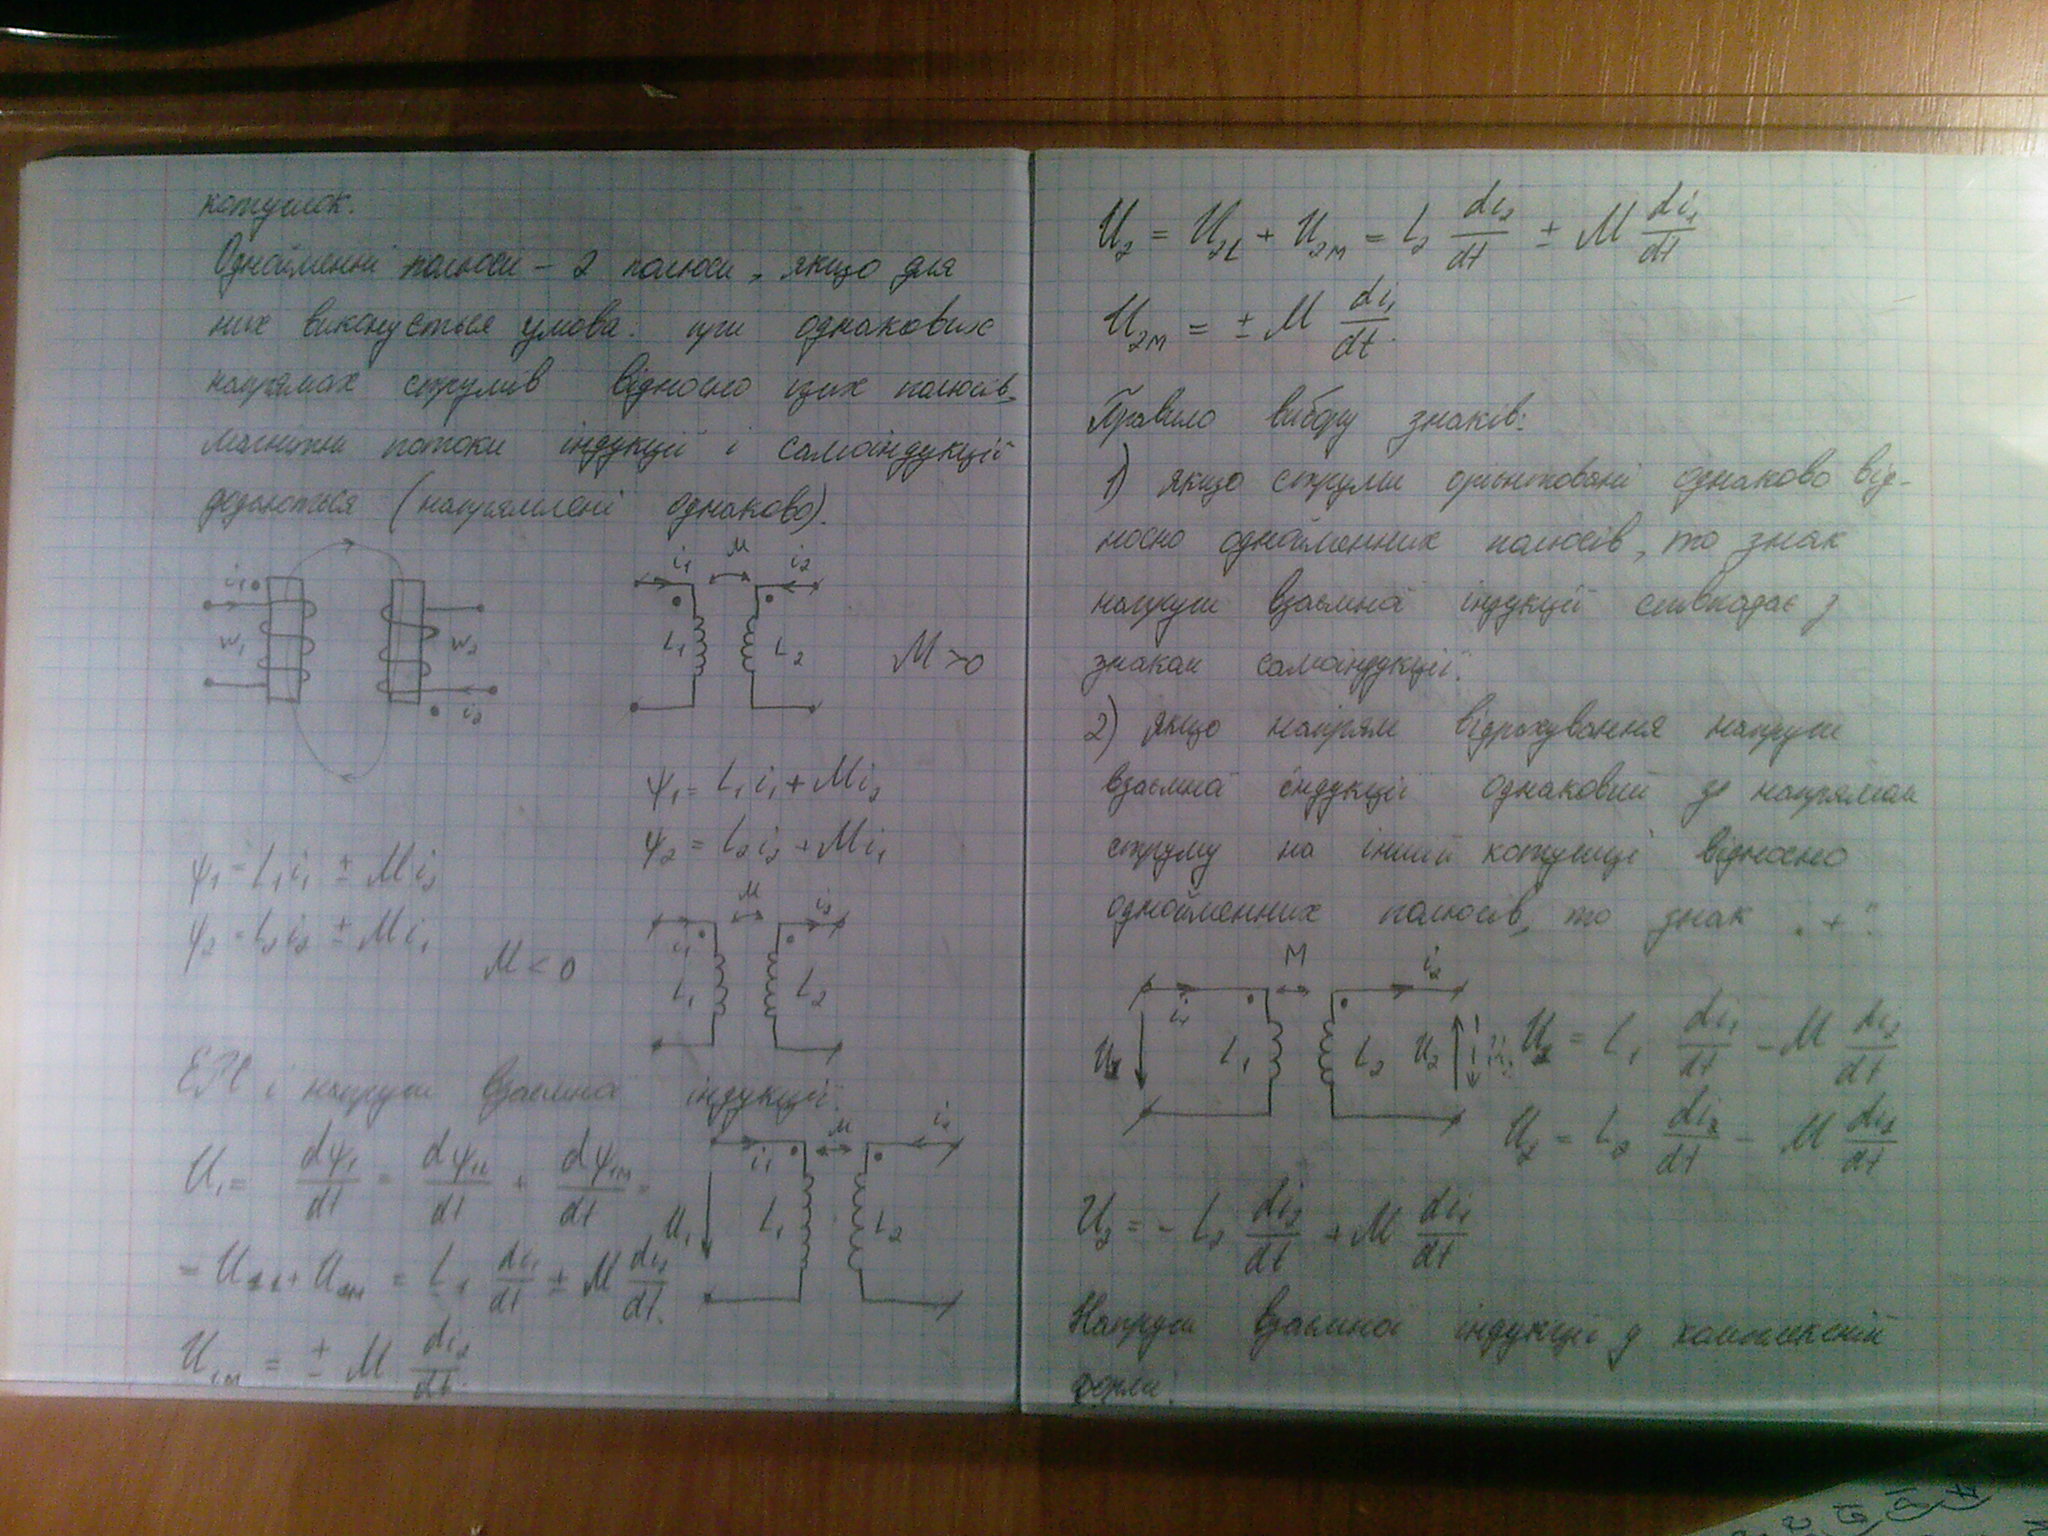 котушок.
Однойменні полюси – 2 полюси, якщо для
них виконується умова: при однакових
напрямах струмів відносно цих полюсів,
магнітні потоки індукції і самоіндукції
додаються (напрямлені однаково).
i₁ M i₂
i₁
w₁ w₂
L₁ L₂
M > 0
i₂
ψ₁ = L₁i₁ + Mi₂
ψ₂ = L₂i₂ + Mi₁
ψ₁ = L₁i₁ ± Mi₂
ψ₂ = L₂i₂ ± Mi₁
M < 0
M i₂
i₁
L₁ L₂
ЕРС і напруги взаємна індукції.
M i₂
i₁
U₁ L₁ L₂
U₁ = dψ₁/dt = dψ₁L/dt + dψ₁м/dt =
= U₁L + U₁м = L₁ di₁/dt ± M di₂/dt.
U₁м = ± M di₂/dt.
U₂ = U₂L + U₂м = L₂ di₂/dt ± M di₁/dt
U₂м = ± M di₁/dt.
Правило вибору знаків:
1) якщо струми орієнтовані однаково від-
носно однойменних полюсів, то знак
напруги взаємна індукції співпадає з
знаком самоіндукції.
2) якщо напрям відрахування напруги
взаємна індукції однаковий з напрямом
струму на іншій котушці відносно
однойменних полюсів, то знак „+“.
M i₂
i₁
L₁ L₂ U₂
= L₁ di₁/dt – M di₂/dt
U₂ = L₂ di₂/dt – M di₁/dt
U₂ = – L₂ di₂/dt + M di₁/dt
Напруги взаємної індукції у комплексній
формі.